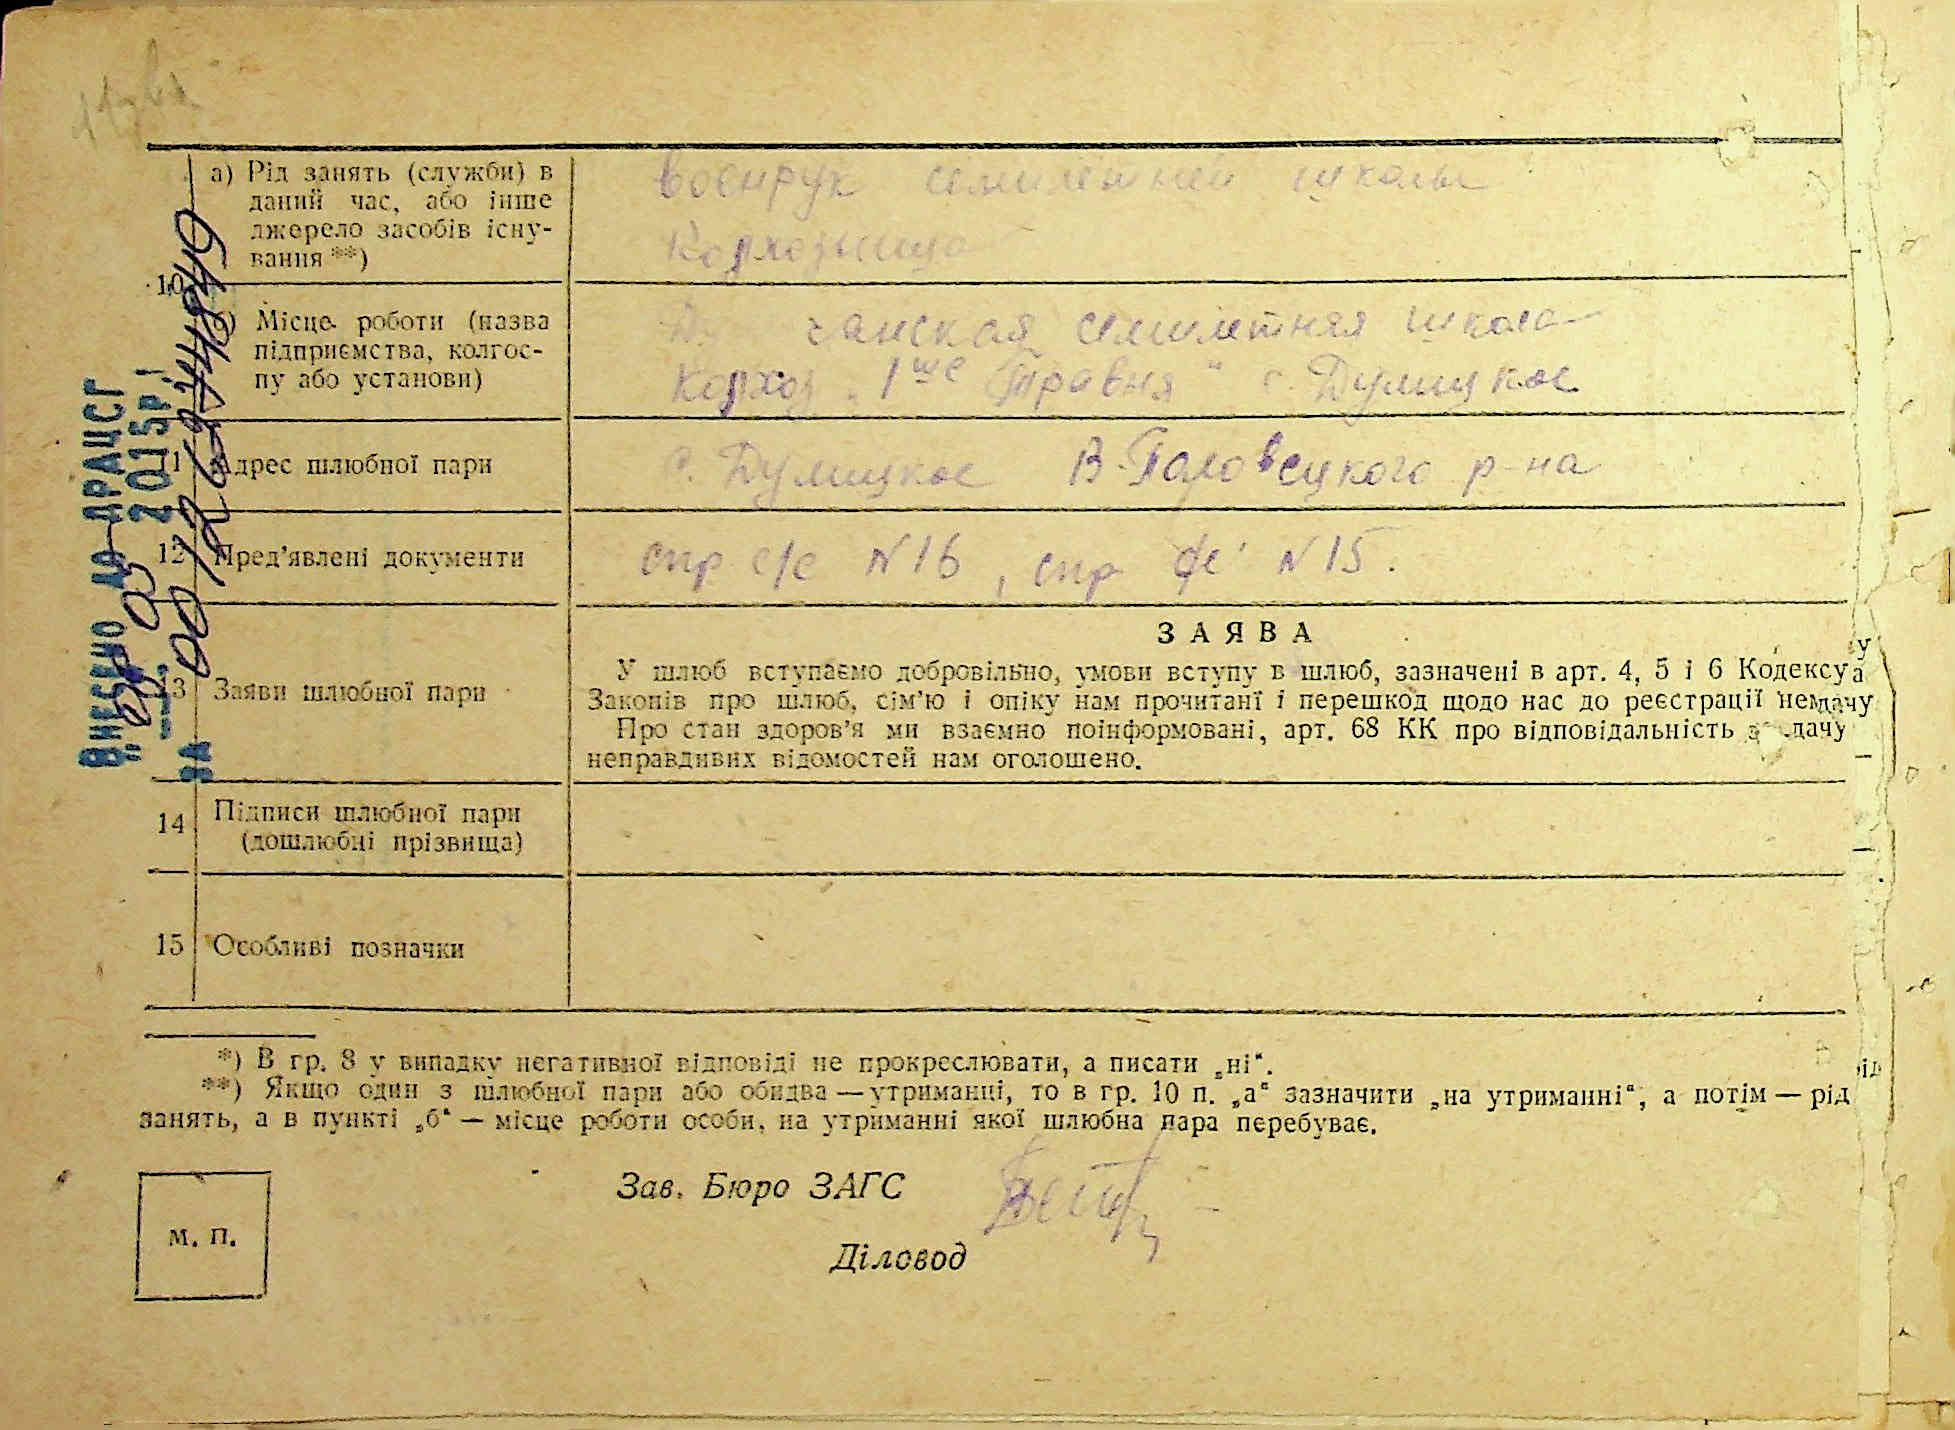 а) Рід занять (служби) в
даний час, або інше
джерело засобів існу-
вання **)
военрук семилетней школы
Колхозница
10
б) Місце роботи (назва
підприємства, колгос-
пу або установи)
чанская семилетняя школа
Колхоз „1ше Травня" с. Дулицкое
11 Адрес шлюбної пари
с. Дулицкое В-Половецкого р-на
12 Пред'явлені документи
спр с/с N 16, спр N 15.
13 Заяви шлюбної пари
ЗАЯВА
У шлюб вступаємо добровільно, умови вступу в шлюб, зазначені в арт. 4, 5 і 6 Кодексу
Законів про шлюб, сім'ю і опіку нам прочитані і перешкод щодо нас до реєстрації
Про стан здоров'я ми взаємно поінформовані, арт. 68 КК про відповідальність дачу
неправдивих відомостей нам оголошено.
14 Підписи шлюбної пари
(дошлюбні прізвища)
15 Особливі позначки
*) В гр. 8 у випадку негативної відповіді не прокреслювати, а писати „ні“.
**) Якщо один з шлюбної пари або обидва — утриманці, то в гр. 10 п. „а“ зазначити „на утриманні“, а потім — рід
занять, а в пункті „б“ — місце роботи особи, на утриманні якої шлюбна пара перебуває.
Зав. Бюро ЗАГС
Діловод
М. П.
ВНЕСЕНО ДО ДРАЦСГ
03 2015р.
ЗА 00126